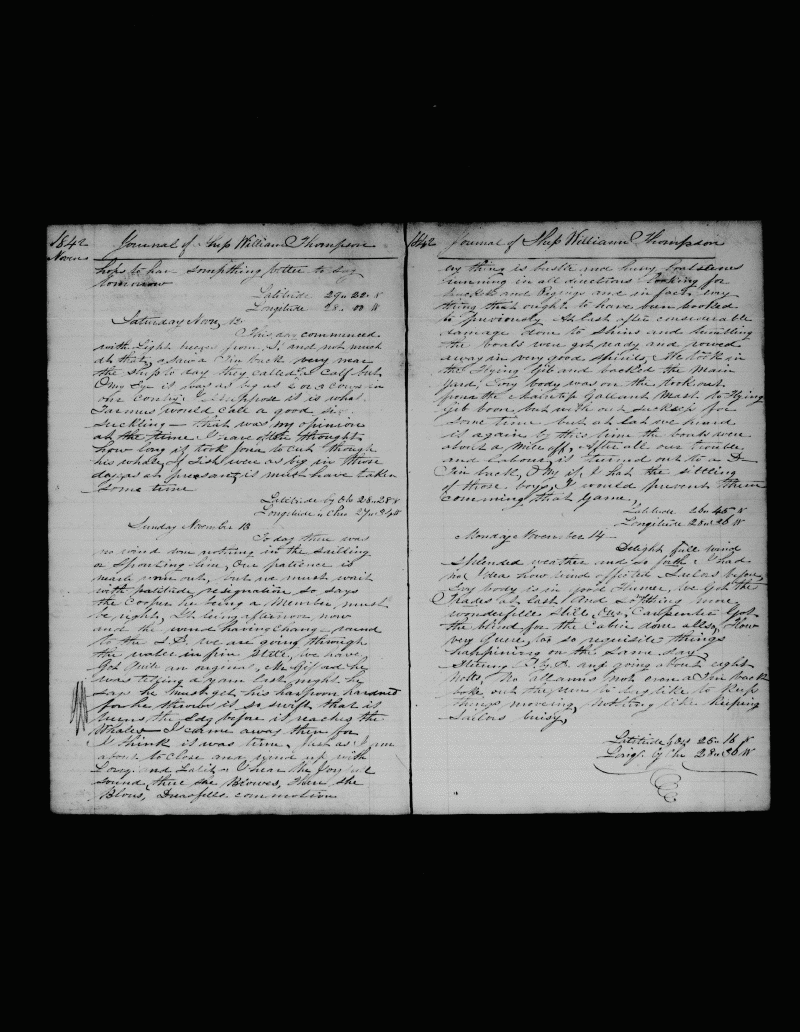 1842 Journal of Ship William Thompson
Novem
hops to hav sompthing better to say
tomorrow
Latitude 29.. 22.. N
Longitude 28.. W
Saturday Nov 12
This day commenced
with Light breeze from and not much
at that, saw a Fin back very near
the ship to day they called a Calf but
O my Eye it was as big as 2 or 3 cows in
our Contry. I suppose it is what
Farmers would call a good
Suckling — that was my opinion
at the time I have often thought
how long it took Jona to cut though
his whale, if Fish were as big in those
days as at preasant, it must have taken
Some time
Latitude by Obs 28..28 N
Longitude by Chro 27.. W
Sunday November 13
To day there was
no wind done nothing in the Sailing
or Sporting line, Our patience is
much worn out, but we must wait
with resignation so says
the Cooper he being a Member, must
be right, It being afternoon now
and the wind having change round
to the S.E. we are going through
the water in fine Stile, we have
Got quite an original, Mr Gifford he
was telling a yarn last night he
says he must get his harpoon hardned
for he throws it so swift that it
burns the Edg before it reaches the
Whale I came away then for
I think it was time, Just as I am
about to close and wind up with
Long. and Latit. I hear the Joyful
Sound, there she Blowes, there she
Blows, commotion
1842 Journal of Ship William Thompson
evry thing is bustle and hury boat steers
running in all directions looking for
buckets and Rigings and in fact evry
thing that ought to have been looked
to previously At last after considerable
damage done to Shins and
the boats were got ready and rowed
away in very good spirits, We took in
the Flying Gib and backed the main
Yard, Evry body was on the look out
from the Main top Gallant Mast to Flying
gib boom but with out for
some time but at last we heard
it again by this time the boats were
about a Mile off, after all our trouble
and labour it turned out to a D
Fin back, O My if I had the
of those boys, I would prevent them
comming that Game,
Latitude 26.. 45.. N
Longitude 28.. 36 W
Monday November 14
Delight full wind
Splended weather and so forth I had
no Idea how wind affected Sailors before,
Evry body is in good Humor, we Got the
Trades at last and is
wonderfull. Still Our Carpenter Got
the blind for the Cabin done allso, How
very Quere, two so requisite things
happining on the same day
Stering S.. and going about eight
Nots, No allarms not even a Fin back
boke out like to keep
things moveing, Nothing like keeping
Sailors buisy
Latitude by Obs 25.. 16 N
Longt. by Chr 28.. 30 W